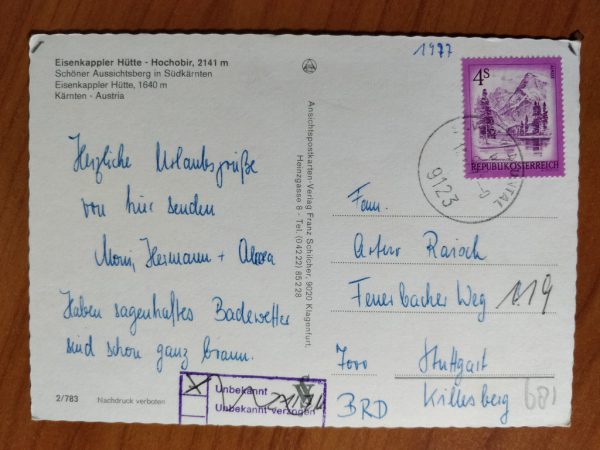 Eisenkappler Hütte - Hochobir, 2141 m
Schöner Aussichtsberg in Südkärnten
Eisenkappler Hütte, 1640 m
Kärnten - Austria
Herzliche Urlaubsgrüße
von hier senden
Hermann +
Haben sagenhaftes Badewetter
sind schon ganz braun.
2/783 Nachdruck verboten
Unbekannt
Unbekannt verzogen
Ansichtspostkarten-Verlag Franz Schilcher, 9020 Klagenfurt,
Heinzgasse 8 - Tel. (0 42 22) 85 2 28
1977
4S
REPUBLIK ÖSTERREICH
9123
Fam.
Feuerbacher Weg 119
7000 Stuttgart
BRD Killesberg